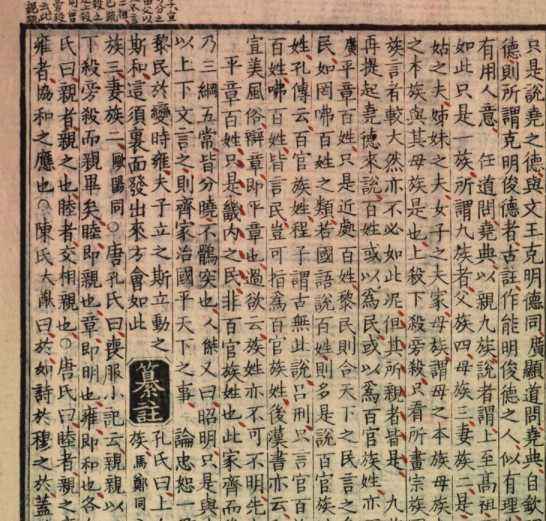 只是說堯之德與文王克明德同廣顯道問堯典自欽
德則所謂克明俊德者古註作能明俊德之人似有理
有用人意任道問堯典以親九族說者謂上至高祖
如此只是一族所謂九族者父族四母族三妻族二是
姑之夫姊妹之夫女子之夫家母族謂母之本族母族
之本族與其母族是也上殺下殺旁殺只看所畫宗族
族言者較大然亦不必如此泥但其所親者皆是九
再提起堯德來說百姓或以爲民或以爲百官族姓亦
廣平章百姓只是近處百姓黎民則合天下之民言之
民如罔咈百姓之類若國語說百姓則多是說百官族
姓孔傳云百官族姓程子謂古無此說呂刑只言官百
百姓罔咈百姓皆言民豈可指爲百官族姓後漢書亦云
宜美風俗辯章即平章也過欲云族姓亦不可不明先
平章百姓只是畿內之民非百官族姓也此家齊而
乃三綱五常皆分曉不鶻突也人傑又曰昭明只是與
以上下文言之則齊家治國平天下之事論忠恕一
黎民於變時雍夫子立之斯立動之
斯和這須裏面發出來方會如此纂註孔氏曰上
族三妻族二歐陽同唐孔氏曰喪服小記云親親以
族馬鄭同
下殺旁殺而親畢矣睦即親也章即明也雍即和也各
氏曰親者親之也睦者交相親也唐氏曰睦者親之
雍者協和之應也陳氏大猷曰於如詩於穆之於蓋